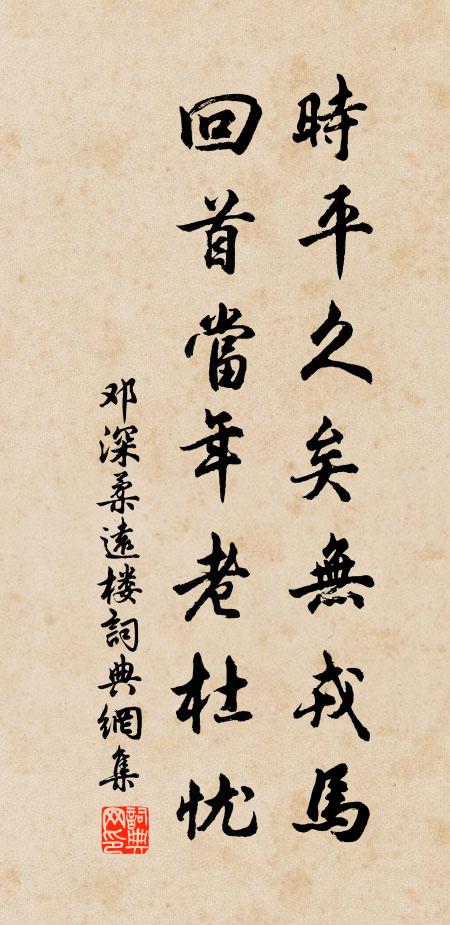 時平久矣無戎馬
回首當年老杜忧
邓深柔遠楼詞典網集
詞典
网印